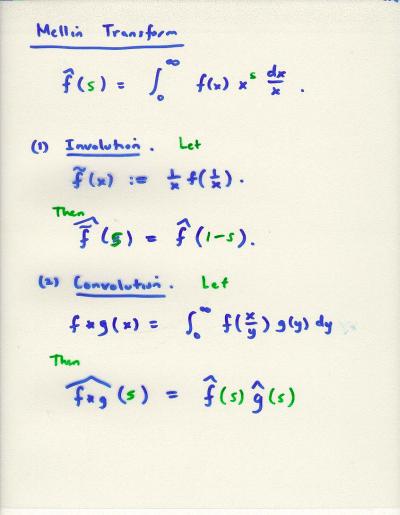 Mellin Transform
f̂(s) = ∫₀^∞ f(x) x^s dx/x .
(1) Involution. Let
f̃(x) := 1/x f(1/x).
Then
f̃̂(s) = f̂(1-s).
(2) Convolution. Let
f*g(x) = ∫₀^∞ f(x/y) g(y) dy
Then
f*g^(s) = f̂(s) ĝ(s)